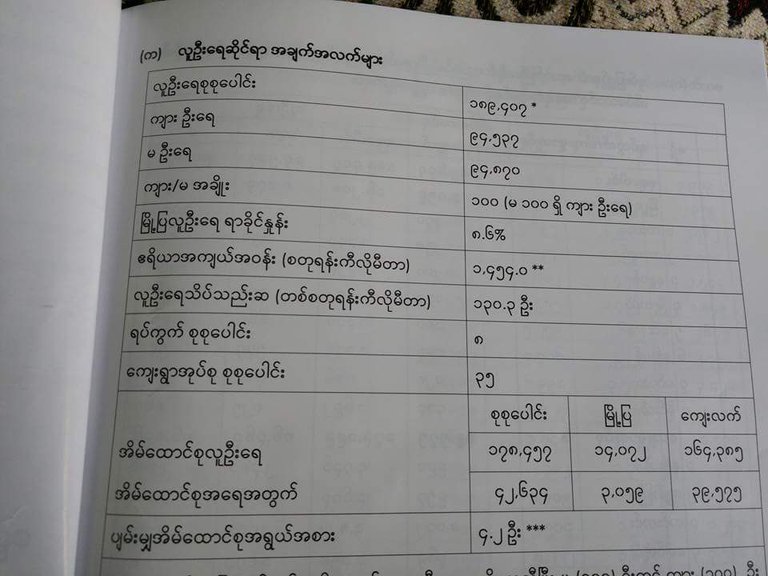 (က) လူဦးရေဆိုင်ရာ အချက်အလက်များ
လူဦးရေစုစုပေါင်း ၁၈၉,၄၀၇ *
ကျား ဦးရေ ၉၄,၅၃၇
မ ဦးရေ ၉၄,၈၇၀
ကျား/မ အချိုး ၁၀၀ (မ ၁၀၀ ရှိ ကျား ဦးရေ)
မြို့ပြလူဦးရေ ရာခိုင်နှုန်း ၈.၆%
ဧရိယာအကျယ်အဝန်း (စတုရန်းကီလိုမီတာ) ၁,၄၅၄.၀ **
လူဦးရေသိပ်သည်းဆ (တစ်စတုရန်းကီလိုမီတာ) ၁၃၀.၃ ဦး
ရပ်ကွက် စုစုပေါင်း ၈
ကျေးရွာအုပ်စု စုစုပေါင်း ၃၅
စုစုပေါင်း မြို့ပြ ကျေးလက်
အိမ်ထောင်စုလူဦးရေ ၁၇၈,၄၅၇ ၁၄,၀၇၂ ၁၆၄,၃၈၅
အိမ်ထောင်စုအရေအတွက် ၄၂,၆၃၄ ၃,၀၅၉ ၃၉,၅၇၅
ပျမ်းမျှအိမ်ထောင်စုအရွယ်အစား ၄.၂ ဦး ***